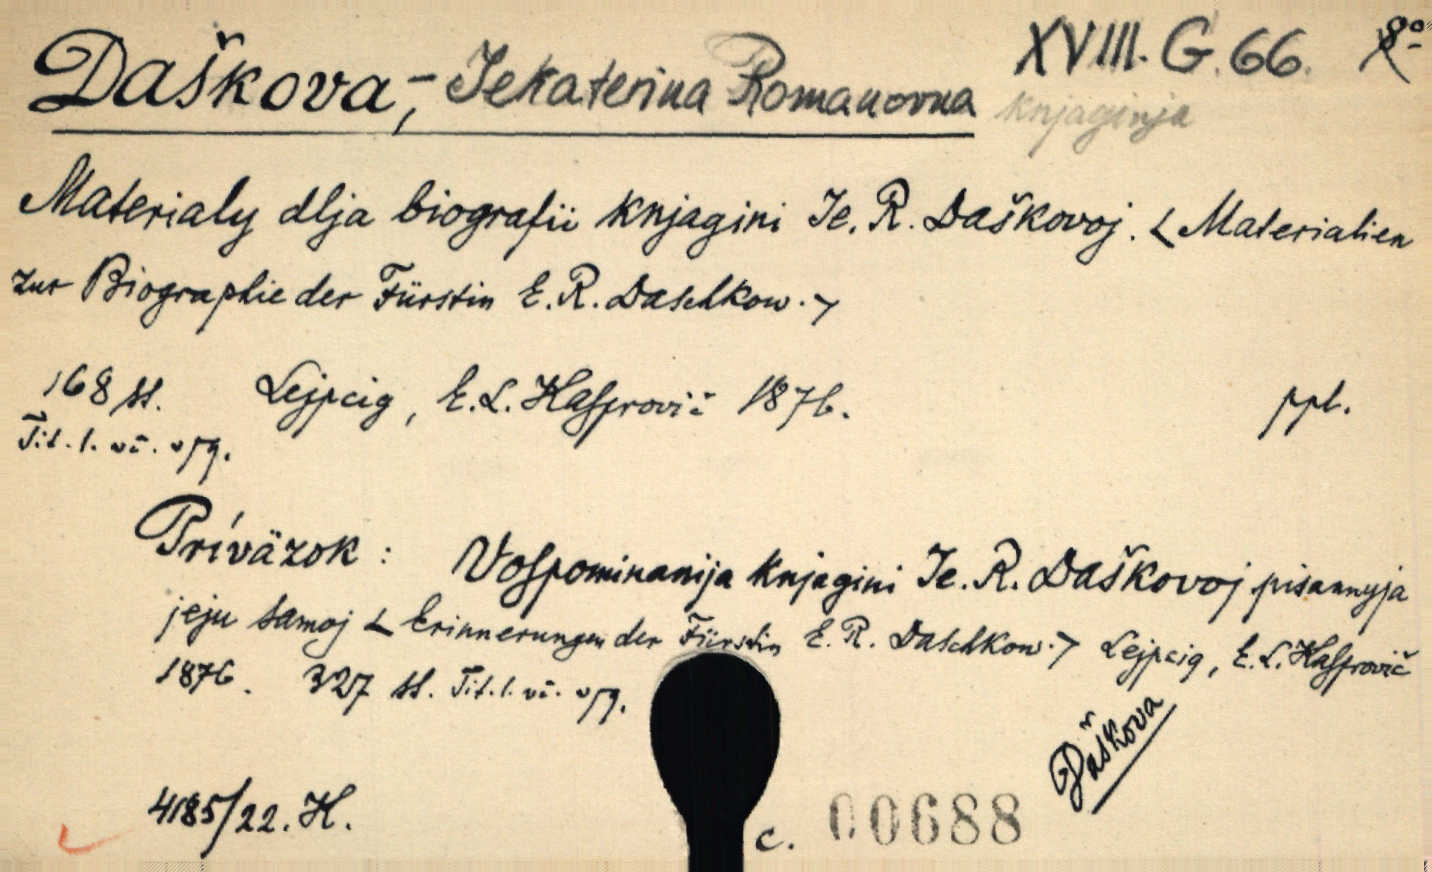 Daškova,- Jekaterina Romanovna XVIII. G. 66. 8°
knjaginja
Materialy dlja biografii knjagini Je. R. Daškovoj. < Materialien
zur Biographie der Fürstin E. R. Daschkow. >
168 ss. Lejpcig, E. L. Kasprovič 1876. ppl.
Tit. l. vč.
Prívázok: Vospominanija knjagini Je. R. Daškovoj pisannyja
jeju samoj < Erinnerungen der Fürstin E. R. Daschkow. > Lejpcig, E. L. Kasprovič
1876. 327 ss. Tit. l. vč.
Daškova
4185/22. H. c. 00688